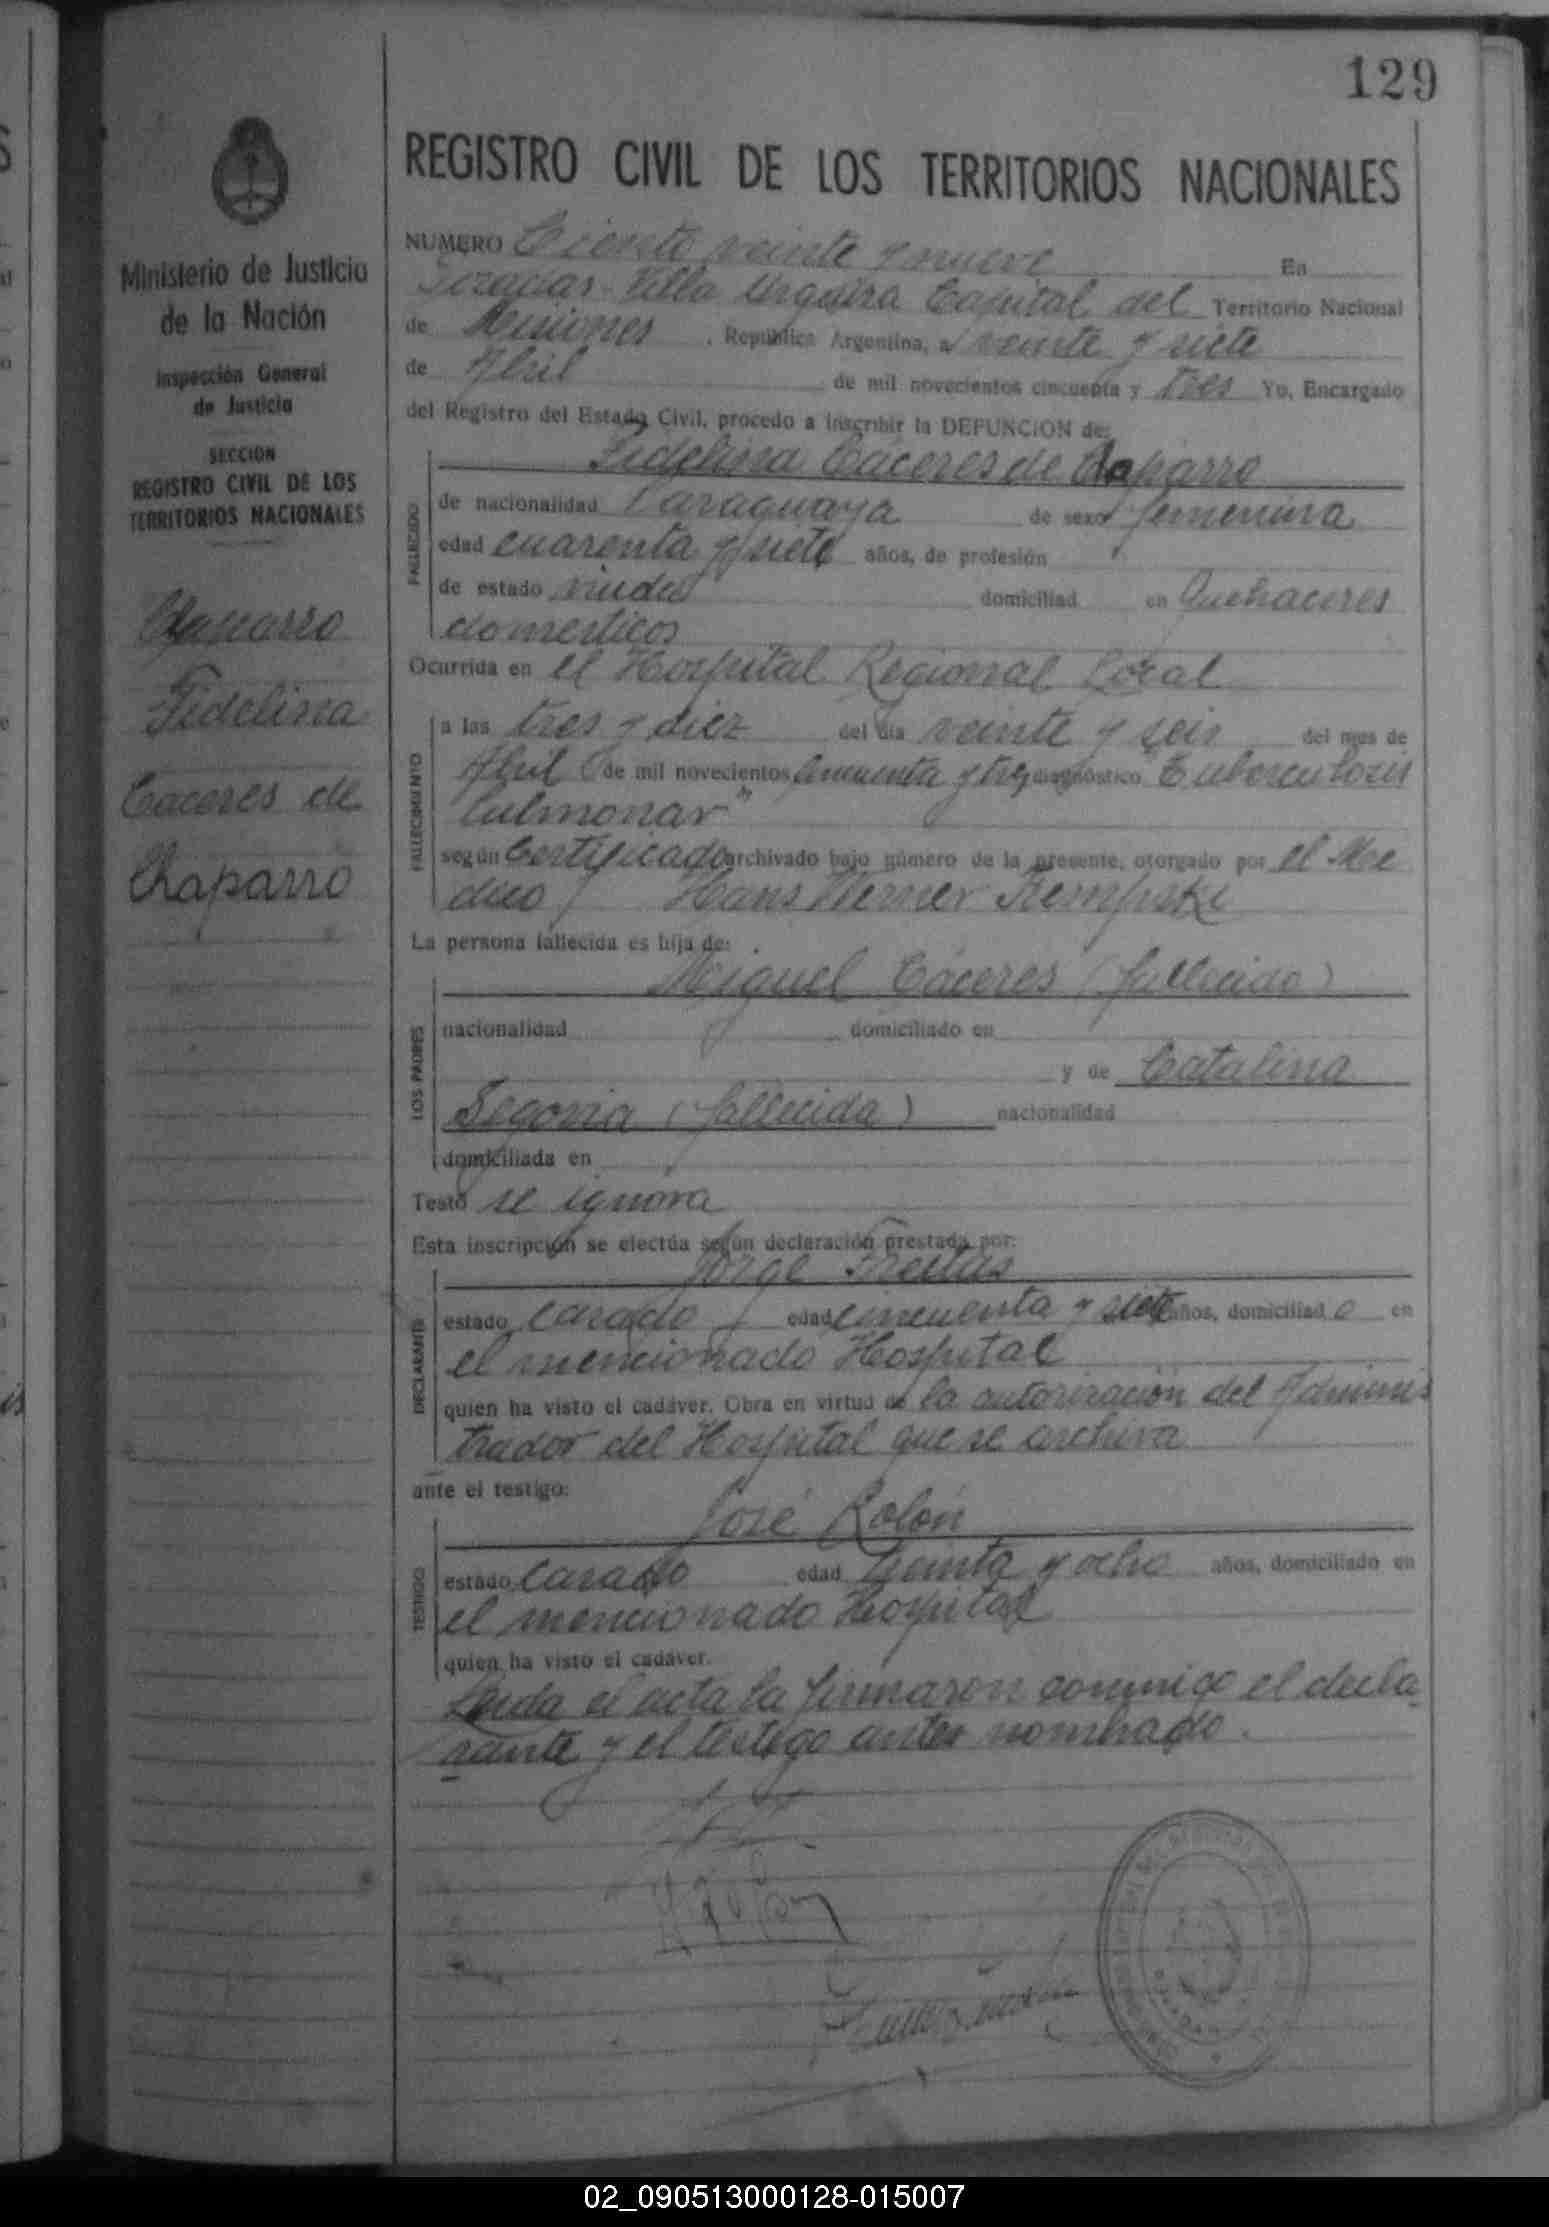 129
Ministerio de Justicia
de la Nación
Inspección General
de Justicia
SECCION
REGISTRO CIVIL DE LOS
TERRITORIOS NACIONALES
Chaparro
Fidelina
Caceres de
Chaparro
REGISTRO CIVIL DE LOS TERRITORIOS NACIONALES
NUMERO Ciento veinte y nueve En
Posadas - Villa Urquiza Capital del Territorio Nacional
de Misiones, República Argentina, a veinte y siete
de Abril de mil novecientos cincuenta y tres Yo, Encargado
del Registro del Estado Civil, procedo a inscribir la DEFUNCION de:
Fidelina Cáceres de Chaparro
FALLECIDO
de nacionalidad Paraguaya de sexo femenina
edad cuarenta y siete años, de profesión
de estado viuda domiciliad en Quehaceres
domesticos
Ocurrida en el Hospital Regional Local
FALLECIMIENTO
a las tres y diez del día veinte y seis del mes de
Abril de mil novecientos cincuenta y tres diagnóstico "Tuberculosis
Pulmonar"
según Certificado archivado bajo número de la presente, otorgado por el Me
dico Hans Werner
La persona fallecida es hija de:
Miguel Cáceres (fallecido)
LOS PADRES
nacionalidad domiciliado en
y de Catalina
Segovia (fallecida) nacionalidad
domiciliada en
Testó se ignora
Esta inscripción se efectúa según declaración prestada por:
Jorge Freitas
DECLARANTE
estado casado edad cincuenta y siete años, domiciliad o en
el mencionado Hospital
quien ha visto el cadáver. Obra en virtud de la autorización del Adminis
trador del Hospital que se archiva
ante el testigo:
José Rolón
TESTIGO
estado casado edad treinta y ocho años, domiciliado en
el mencionado Hospital
quien ha visto el cadáver.
Leida el acta la firmaron conmigo el decla-
rante y el testigo antes nombrado.
02_090513000128-015007